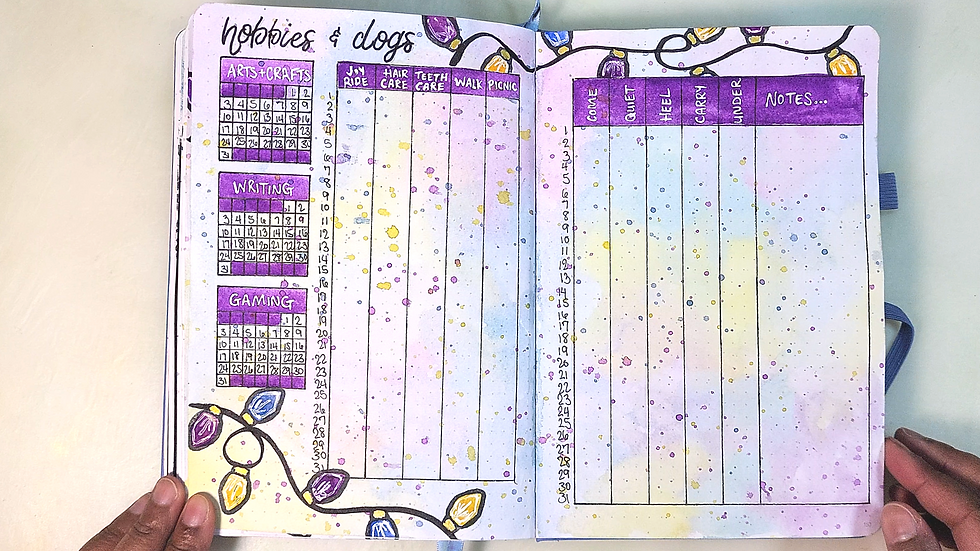 hobbies & dogs
ARTS+CRAFTS
1 2
3 4 5 6 7 8 9
10 11 12 13 14 15 16
17 18 19 20 21 22 23
24 25 26 27 28 29 30
31
WRITING
1 2
3 4 5 6 7 8 9
10 11 12 13 14 15 16
17 18 19 20 21 22 23
24 25 26 27 28 29 30
31
GAMING
1 2
3 4 5 6 7 8 9
10 11 12 13 14 15 16
17 18 19 20 21 22 23
24 25 26 27 28 29 30
31
JOY RIDE
HAIR CARE
TEETH CARE
WALK
PICNIC
2
3
4
5
6
7
8
9
10
11
12
13
14
15
16
17
18
19
20
21
22
23
24
25
26
27
28
29
30
31
COME
QUIET
HEEL
CARRY
UNDER
NOTES...
1
2
3
4
5
6
7
8
9
10
11
12
13
14
15
16
17
18
19
20
21
22
23
24
25
26
27
28
29
30
31